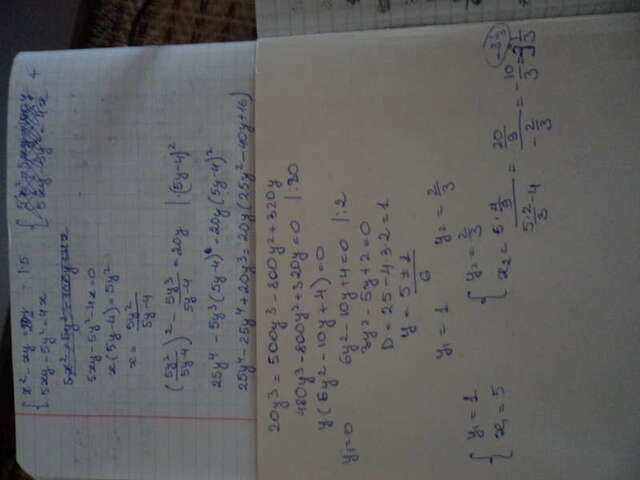 { x² - xy = 20y | · 5
5xy - 5y² = 4x
5xy - 5y² - 4x = 0
x(5y-4) = 5y²
x = 5y²/5y-4
(5y²/5y-4)² - 5y³/5y-4 = 20y | · (5y-4)²
25y⁴ - 5y³(5y-4) = 20y(5y-4)²
25y⁴ - 25y⁴ + 20y³ = 20y(25y² - 40y + 16)
20y³ = 500y³ - 800y² + 320y
480y³ - 800y² + 320y = 0 | : 80
y(6y² - 10y + 4) = 0
y₁ = 0 6y² - 10y + 4 = 0 | : 2
3y² - 5y + 2 = 0
D = 25 - 4·3·2 = 1
y = 5 ± 1/6
y₁ = 1 y₂ = 2/3
{ y₁ = 1
x₁ = 5
{ y₂ = 2/3
x₂ = 5 · 4/9 / 5·2/3 - 4 = 20/9 / -2/3 = -10/3 = -3 1/3